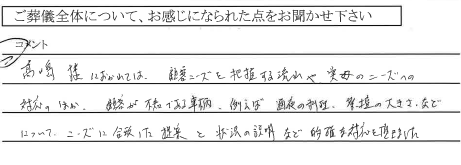 ご葬儀全体について、お感じになられた点をお聞かせ下さい
コメント
高嶋 様におかれては、顧客ニーズを把握する流れや 実母のニーズへの
対応のほか、顧客が不慣れである 例えば 通夜の 祭壇の大きさ、など
について ニーズに合致した 提案 と 状況の説明 など 的確な対応を頂きました